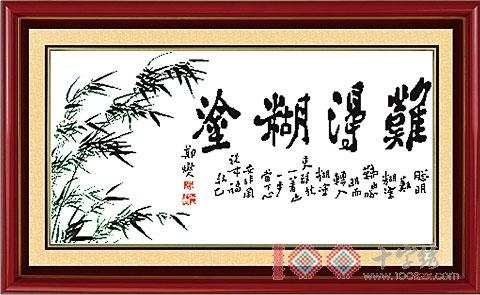 難得糊塗
聰明
難
糊塗
難由聰
明而
轉入
糊塗
更難放
一着退
一步
當下心
安非圖
後來福
報也
鄭燮
100十字绣